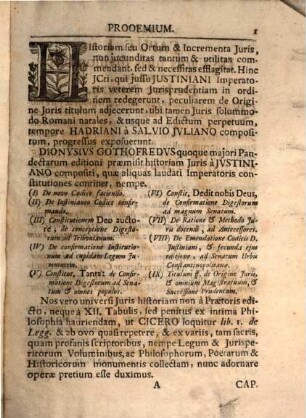 PROOEMIUM. 1
Historiam seu Ortum & Incrementa Juris,
non jucunditas tantum & utilitas com
mendant, sed & necessitas efflagitat. Hinc
JCti, qui jussu JUSTINIANI Imperato-
ris veterem Jurisprudentiam in ordi-
nem redegerunt, peculiarem de Origi-
ne Juris titulum adjecerunt, tibi tamen Juris solummo-
do Romani natales, & usque ad Edictum perpetuum,
tempore HADRIANI à SALVIO JVLIANO composi-
tum, progressus exposuerunt.
DIONYSIUS GOTHOFREDUS quoque majori Pan-
dectarum editioni præmisit historiam Juris à JUSTINI-
ANO compositi, quæ aliquas laudati Imperatoris con-
stitutiones continet, nempe.
(I) De novo Codice faciendo.
(II) De Justinianeo Codice confir-
mando.
(III) Constitutionem Deo aucto-
re, de conceptione Digesto-
rum ad Tribonianum.
(IV) De confirmatione Institutio-
num ad cupidam Legum Ju-
ventutem.
(V) Constitut, Tanta, de Confir-
matione Digestorum ad Sena-
tum & omnes populos.
(VI) Constit, Dedit nobis Deus,
de Confirmatione Digestorum
ad magnum Senatum.
(VII) De Ratione & Methodo Ju-
ris docendi, ad Antecessores.
(VIII) De Emendatione Codicis D.
Justiniani, & secunda ejus
editione, ad Senatum Urbis
Constantinopolitanæ.
(IX) Titulum ff. de Origine Juris,
& omnium Magistratuum, &
Successione Prudentum.
Nos vero universi Juris historiam non à Prætoris edi-
cto, neque à XII, Tabulis, sed penitus ex intima Phi-
losophia hauriendam, ut CICERO loquitur lib. 1. de
Legg. & ab ovo quasi repetere, & ex variis, tam sacris,
quam profanis scriptoribus, nempe Legum & Jurispe-
ritorum Voluminibus, ac Philosophorum, Poetarum &
Historicorum monumentis collectam, nunc adornare
operæ pretium esse duximus.
A CAP.